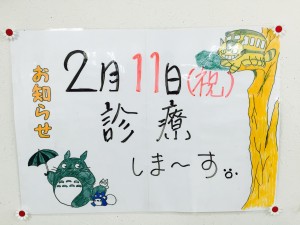 お知らせ
2月11日(祝)
診療
しま〜す。